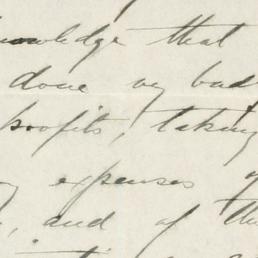 knowledge that
done very bad
profits, taking
expenses of
, and of the